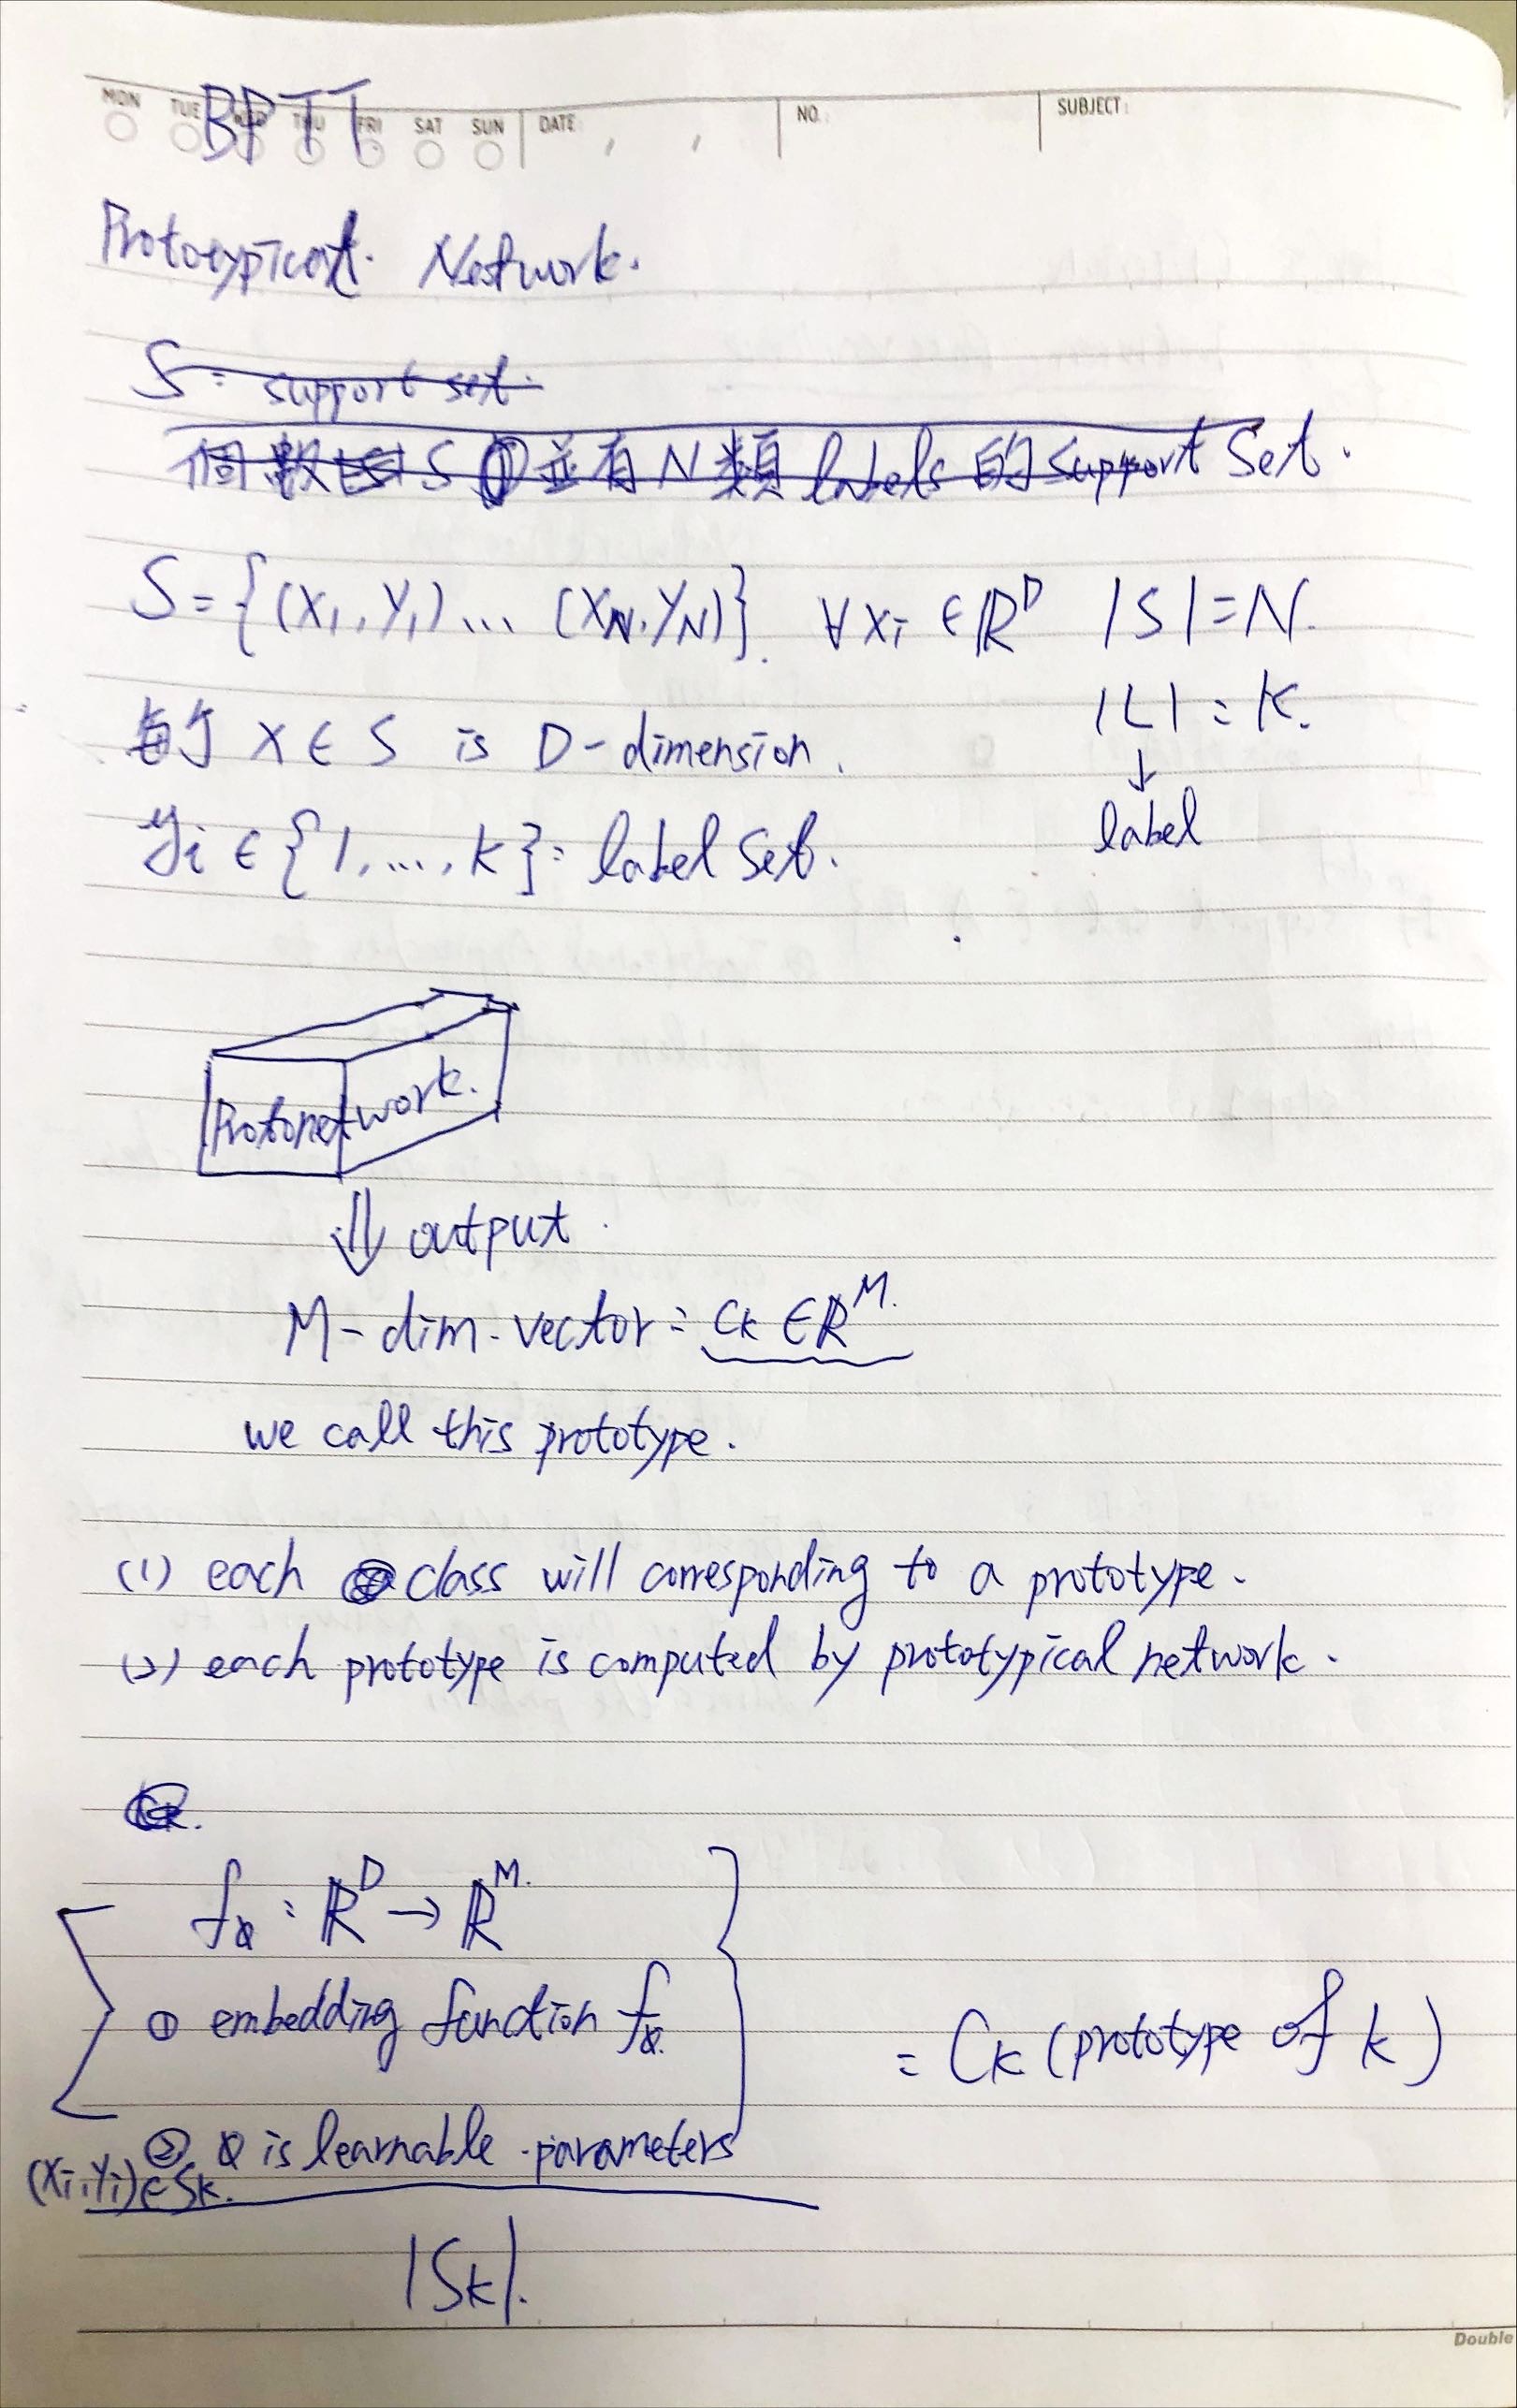 MON TUE WED THU FRI SAT SUN DATE: , , NO.: SUBJECT:
BPTT
Prototypical. Network.
S = support set.
個數 S 並有 N 類 labels 的 support Set.
S = {(X₁, Y₁) ... (X_N, Y_N)}. ∀ xᵢ ∈ ℝᴰ |S| = N.
每個 X ∈ S is D-dimension. |L| = K.
↓
yᵢ ∈ {1, ..., K} = label Set. label
Protonetwork.
⇓ output.
M-dim-vector = C_K ∈ ℝᴹ.
we call this prototype.
(1) each class will corresponding to a prototype.
(2) each prototype is computed by prototypical network.
f_ϕ : ℝᴰ → ℝᴹ.
① embedding function f_ϕ. = C_K (prototype of k)
② ϕ is learnable parameters
(Xᵢ, Yᵢ) ∈ S_K.
|S_K|.
Double